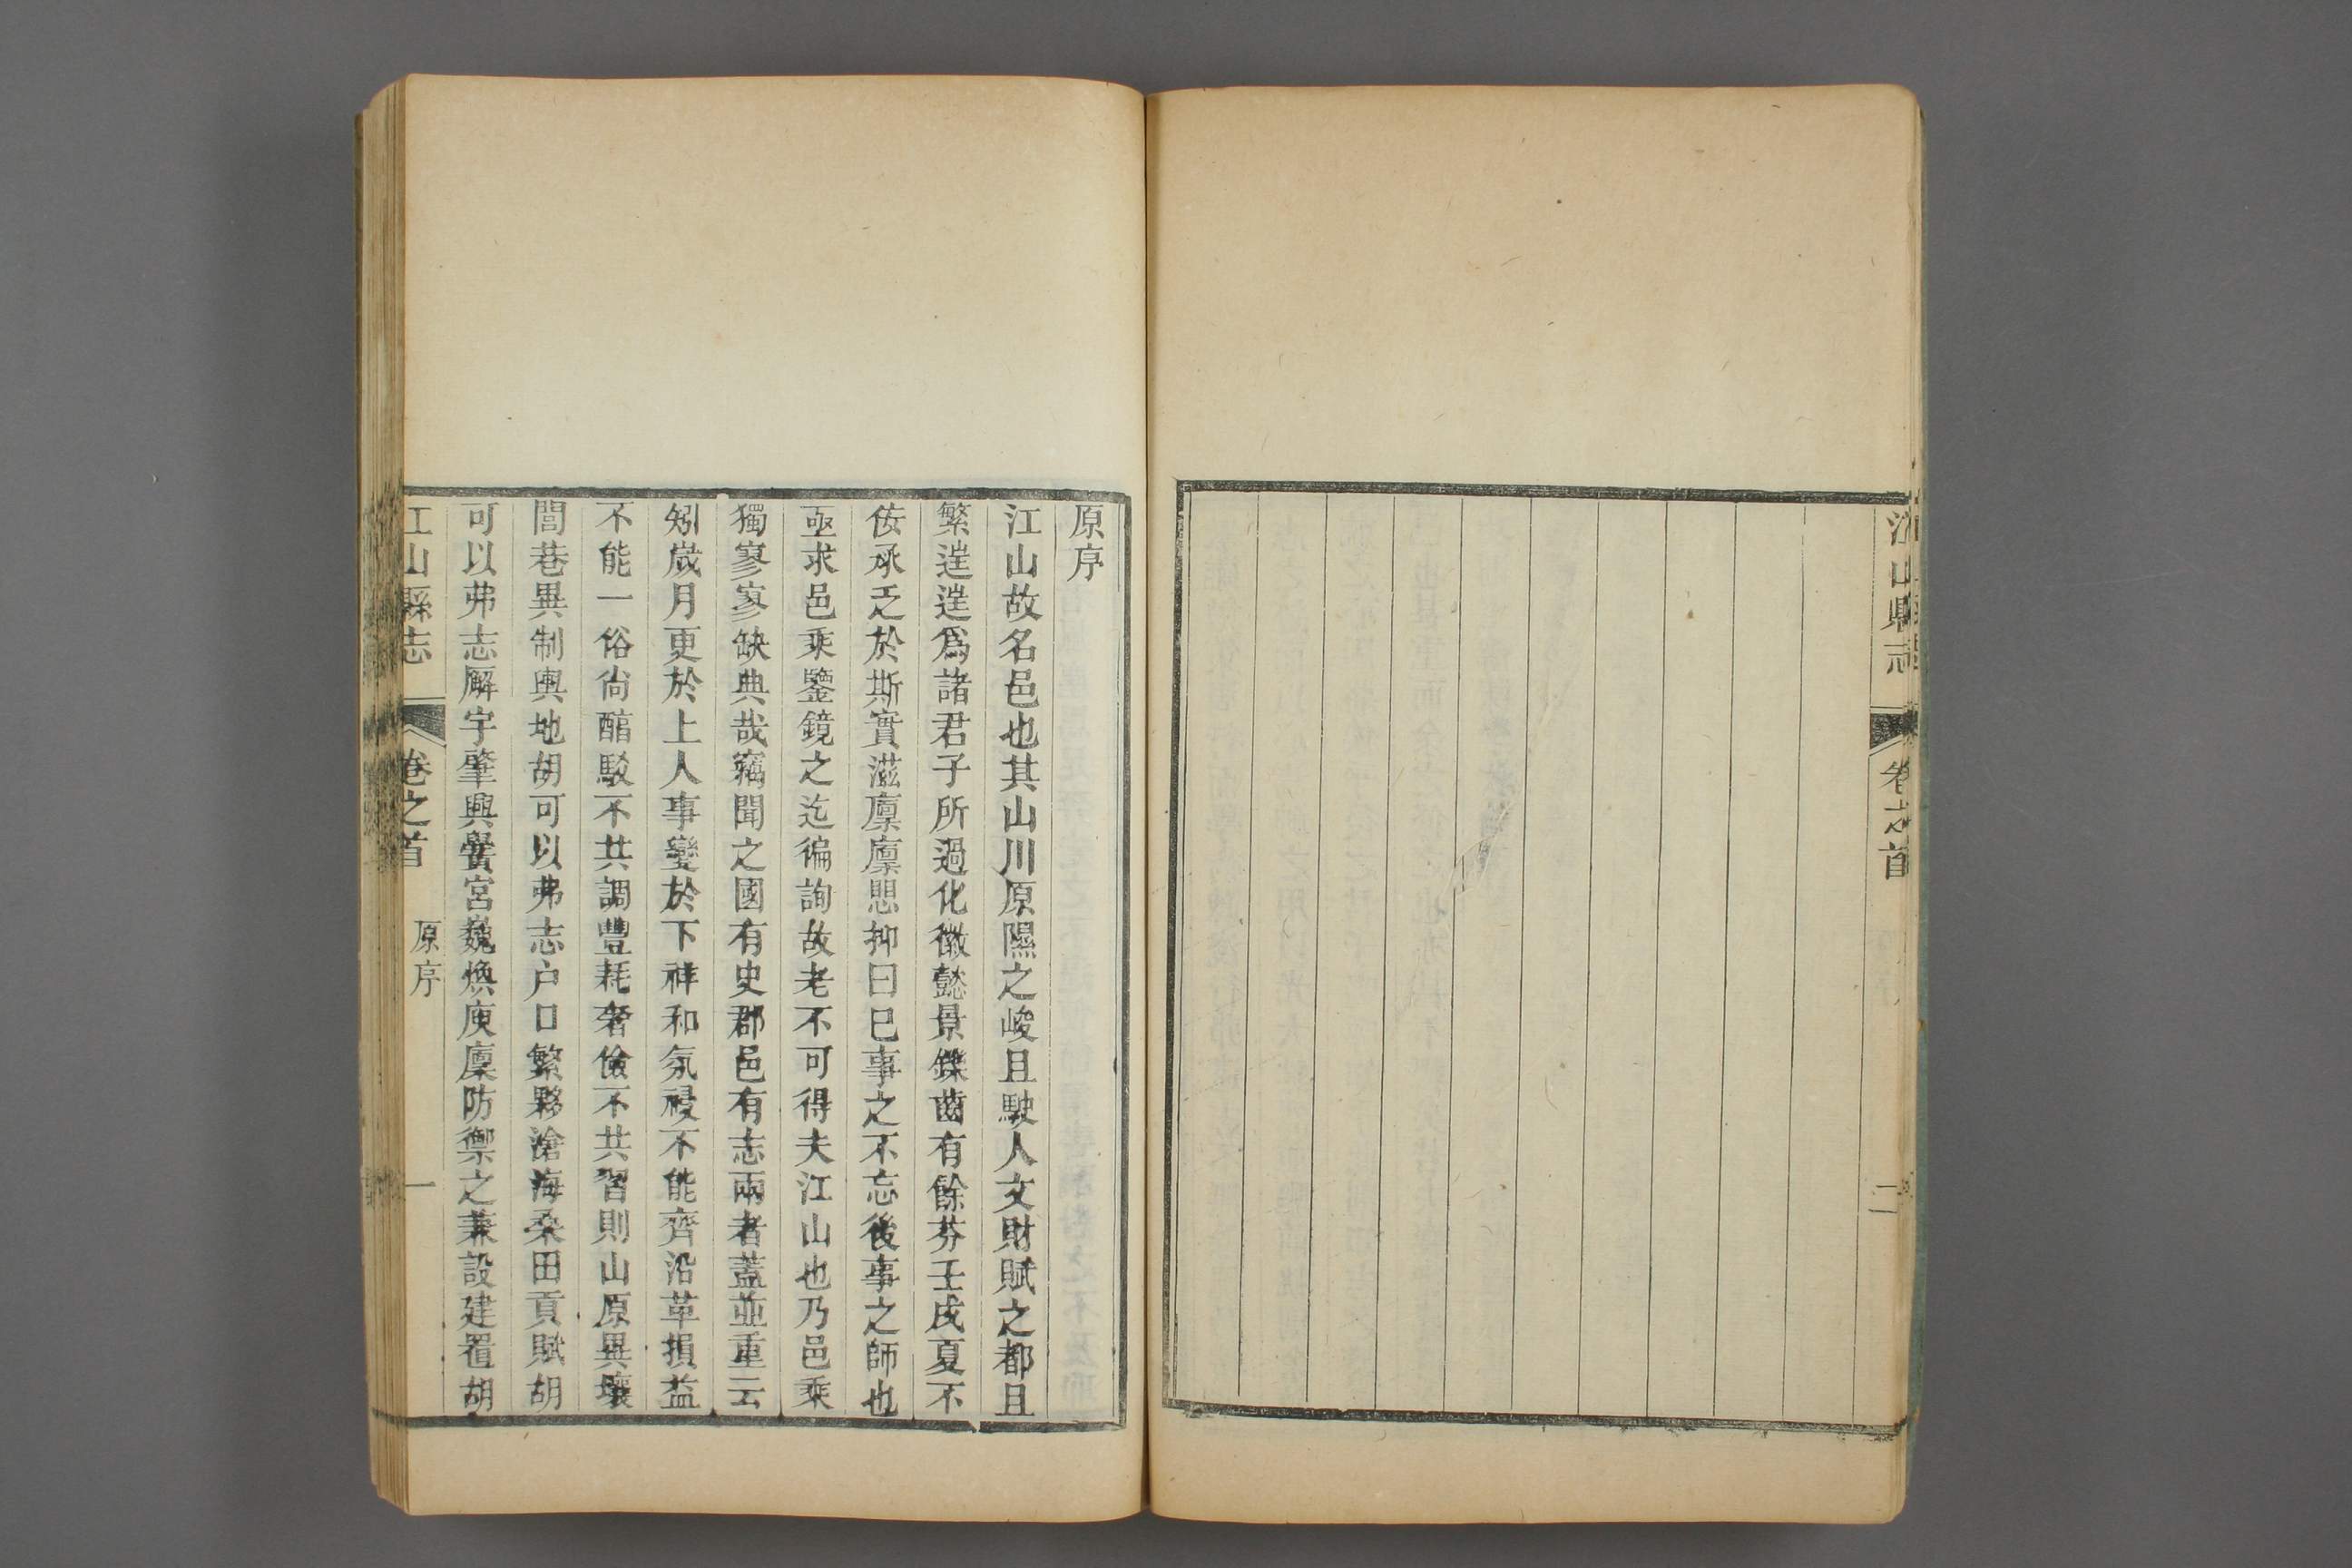 江山縣志
卷之首
二
原序
江山故名邑也其山川原隰之峻且駛人文財賦之都且
繁逰逰爲諸君子所過化徽懿景鑠齒有餘芬壬戌夏不
佞承乏於斯實滋廪廪思抑曰已事之不忘後事之師也
亟求邑乘鑒鏡之迄徧詢故老不可得夫江山也乃邑乘
獨寥寥缺典哉竊聞之國有史郡邑有志兩者蓋並重云
矧歲月更於上人事變於下祥和氛祲不能齊沿革損益
不能一俗尙醕駁不共調豐耗奢儉不共習則山原異壤
閭巷異制輿地胡可以弗志户口繁夥滄海桑田貢賦胡
可以弗志廨宇肇興黌宮巍煥庾廩防禦之兼設建置胡
江山縣志
卷之首
原序
一